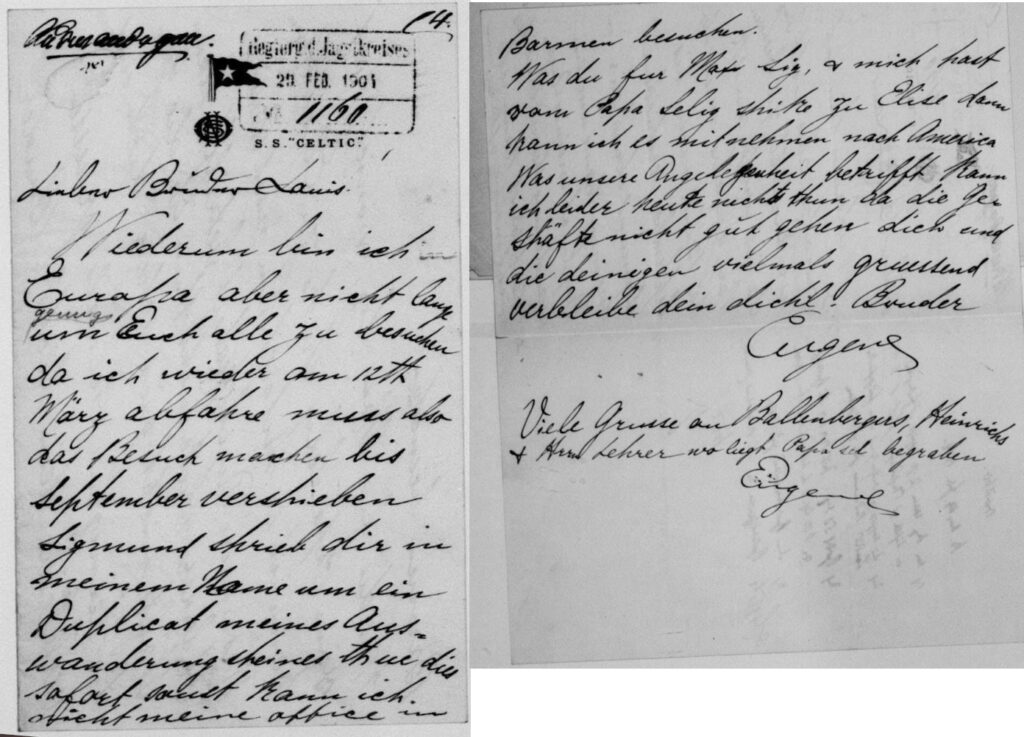 14.
Regierg d. Jagstkreises
29. FEB. 1904
No 1160
S.S. "CELTIC".
Lieber Bruder Louis.
Wiederum bin ich in
Europa aber nicht lang
genug
um Euch alle zu besuchen
da ich wieder am 12th
März abfahre muss also
das Besuch machen bis
September vershieben
Sigmund shrieb dir in
meinem Name um ein
Duplicat meines Aus=
wanderungsheines thue dies
sofort sonst kann ich
nicht meine office in
Barmen besuchen.
Was du fur Max Sig, & mich hast
vom Papa Selig shike zu Elise dann
kann ich es mitnehmen nach America
Was unsere Angelegenheit betrifft kann
ich leider heute nichts thun da die Ge-
shäfte nicht gut gehen dich und
die deinigen vielmals gruessend
verbleibe dein dichl. Bruder
Eugene
Viele Grusse an Ballenbergers, Heinrichs
& Hrrn Lehrer wo liegt Papa sel begraben
Eugene